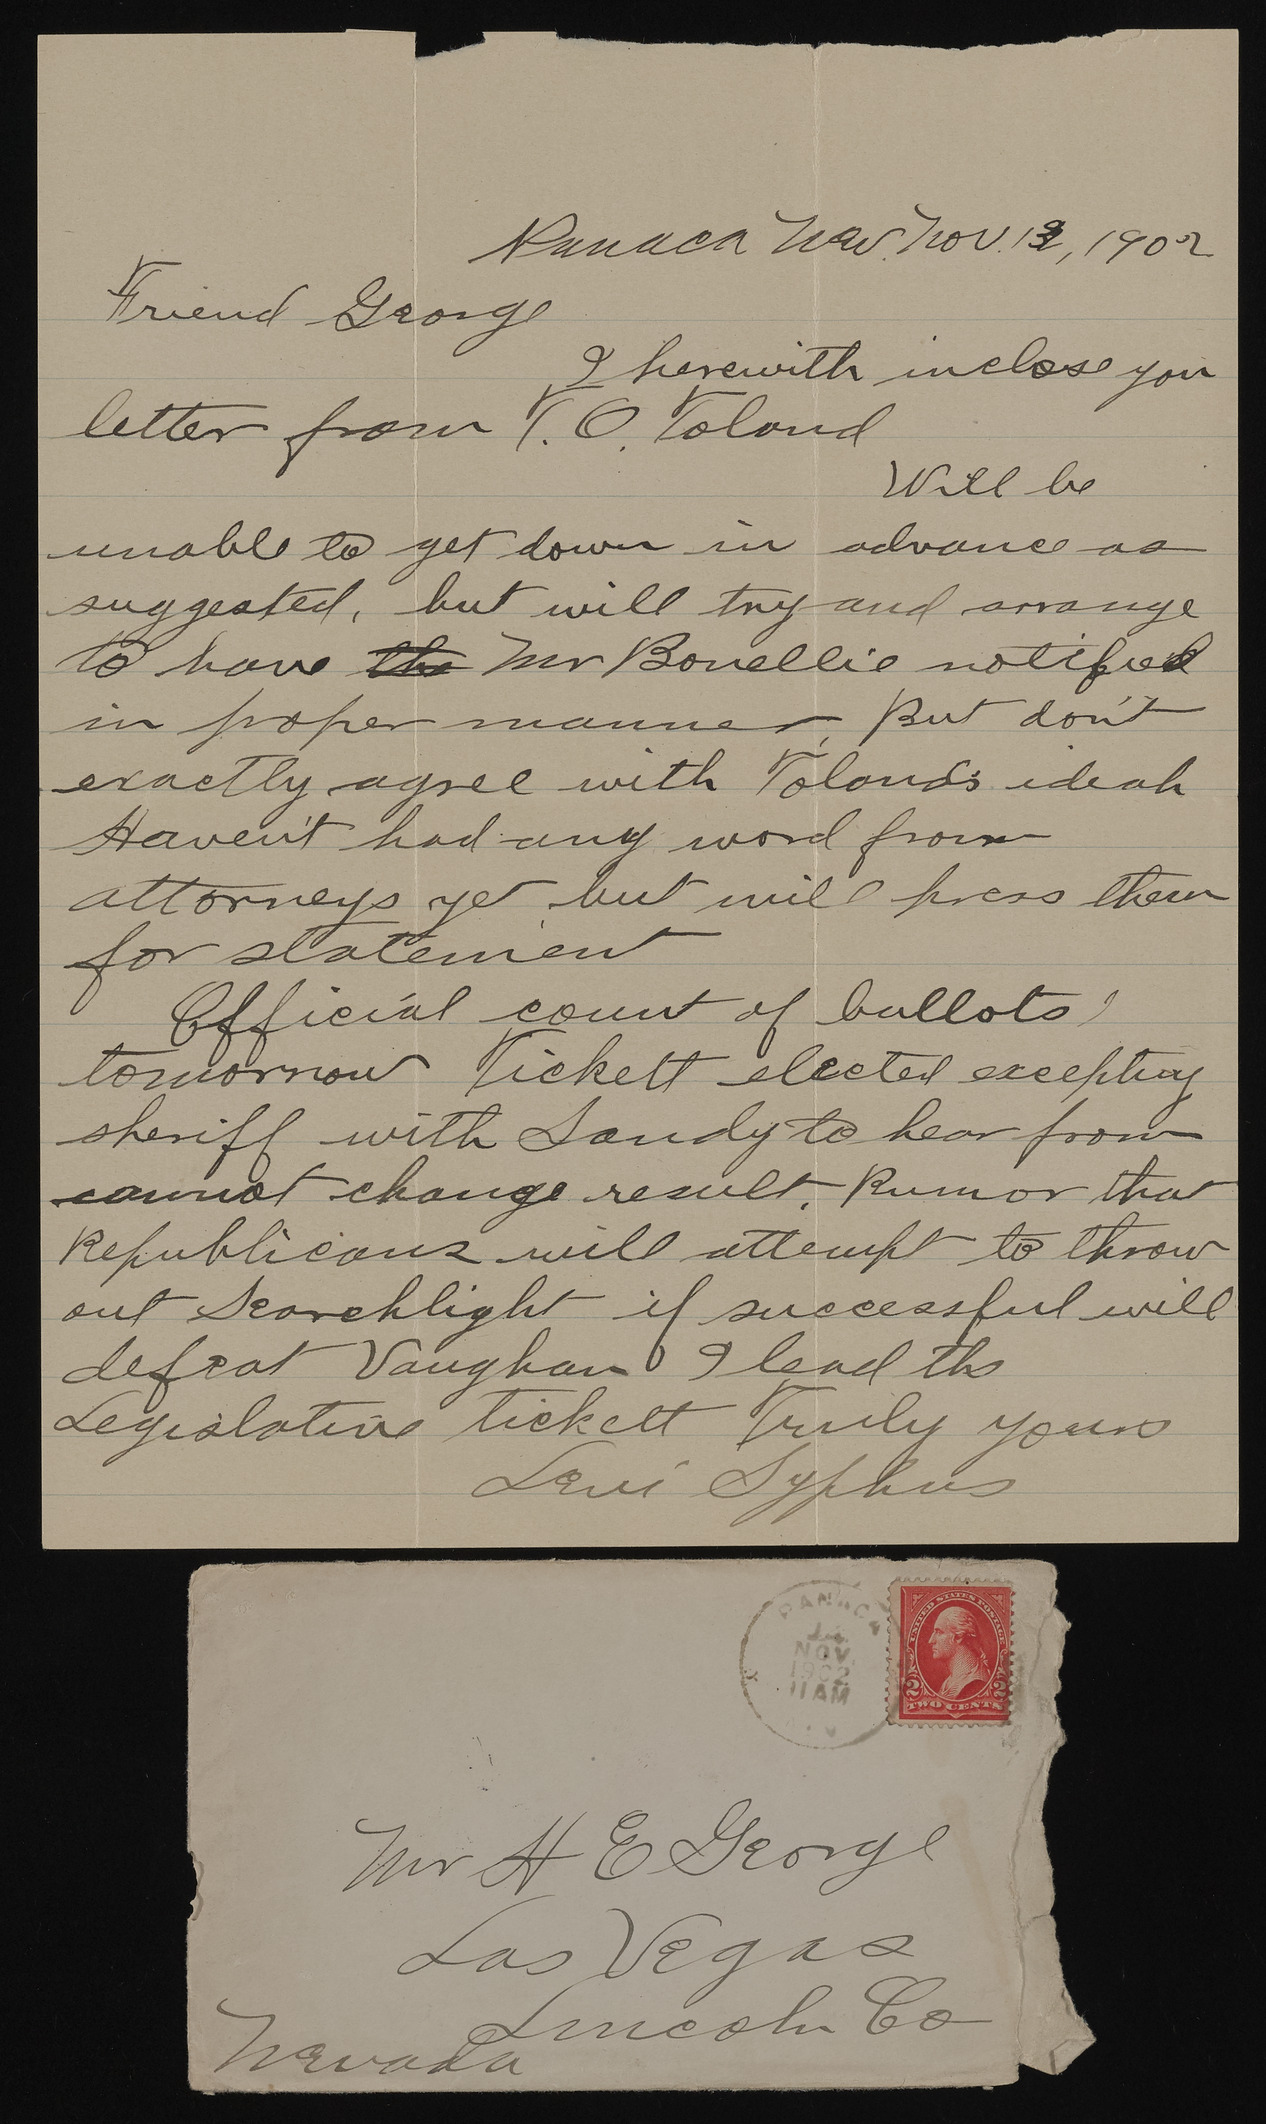 Panaca Nev. Nov. 13, 1902
Friend George
I herewith inclose you
letter from T. O. Toland
Will be
unable to get down in advance as
suggested, but will try and arrange
to have the Mr Bonellie notified
in proper manner, But don't
exactly agree with Toland's ideah
Haven't had any word from
attorneys yet but will press them
for statement
Official count of ballots
tomorrow Tickett elected excepting
sheriff with Sandy to hear from
cannot change result. Rumor that
Republicans will attempt to throw
out Searchlight if successful will
defeat Vaughan I lead the
Legislative tickett Truly yours
Levi Syphus
PANACA
NOV.
1902
11 AM
UNITED STATES POSTAGE
2 2
TWO CENTS
Mr H E George
Las Vegas
Lincoln Co
Nevada